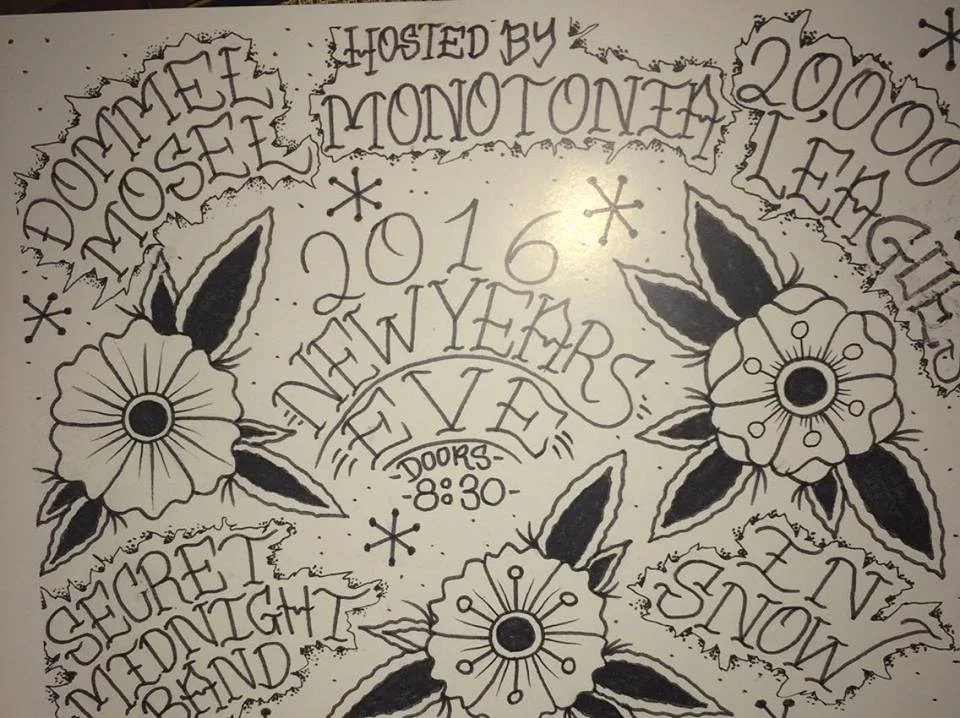 DOMMEL
MOSEL
HOSTED BY
MONOTONIA
20,000
LEAGUES
2016
NEW YEARS
EVE
-DOORS-
-8:30-
SECRET
MIDNIGHT
BAND
IN
SNOW